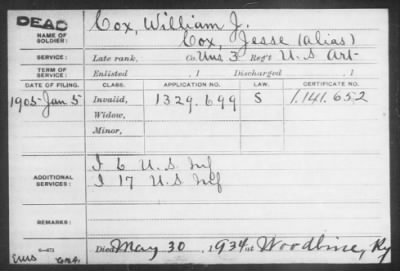 DEAD
Cox, William J.
NAME OF SOLDIER:
Cox, Jesse (alias)
SERVICE:
Late rank, Co. Uns 3 Reg't U.S. Art-
TERM OF SERVICE:
Enlisted , 1 Discharged , 1
DATE OF FILING. CLASS. APPLICATION NO. LAW. CERTIFICATE NO.
1905-Jan. 5 Invalid, 1329.699 S 1.141.652
Widow,
Minor,
ADDITIONAL SERVICES:
I 6 U.S. Inf
I 17 U.S. Inf
REMARKS:
Died May 30, 1934 at Woodbine, Ky